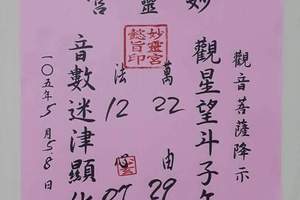 妙靈宮
觀音菩薩降示
觀星望斗子
萬 22 由 29
妙靈宮
懿旨印
法 12 心 07
音數迷津顯
一〇五年5月5.8日